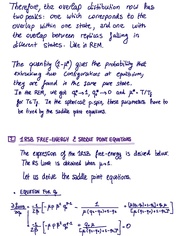 Therefore, the overlap distribution now has
two peaks: one which corresponds to the
overlap within one state, and one with
the overlap between replicas falling in
different states. Like in REM.
The quantity (1-μ*) gives the probability that
extracting two configurations at equilibrium,
they are found in the same pure state.
In the REM, we get q₁*→1, q₀*→0 and μ*→T/Tc
for T≤Tc. In the spherical p-spin, these parameters have to
be fixed by the saddle point equations.
1RSB FREE-ENERGY & SADDLE POINT EQUATIONS
The expression of the 1RSB free-energy is derived below.
The RS limit is obtained when μ=1.
Let us derive the saddle point equations.
• EQUATION FOR q₀